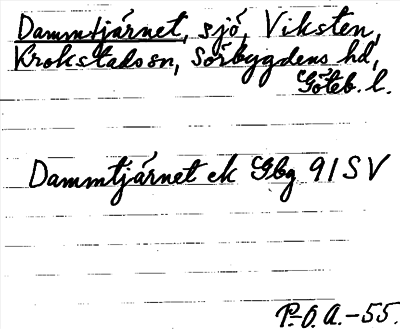 Dammtjärnet, sjö, Viksten,
Krokstads sn, Sörbygdens hd,
Göteb. l.
Dammtjärnet ek Gbg 91 SV
P.O.A.-55.